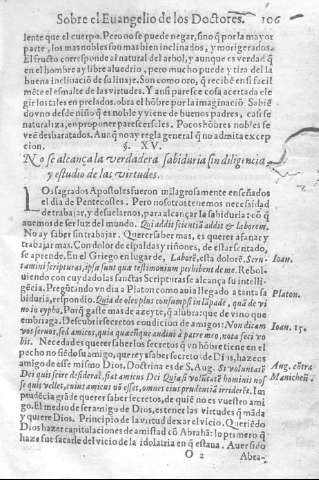 Sobre el Euangelio de los Doctores. 106
lente que el cuerpo. Pero no se puede negar, sino q̃ por la mayor
parte, los mas nobles son mas bien inclinados, y morigerados.
El fructo corresponde al natural del arbol, y aunque es verdad q̃
en el hombre ay libre aluedrio, pero mucho puede y tira del la
buena inclinació de su linaje. Son como oro, q̃ recibé en si facil
méte el esmalte de las virtudes. Y ansi paresce cosa acertada ele
gir los tales en prelados.
uiene de buenos padres, casi se
naturaliza, en proponer parescerseles. Pocos hõbres nobles se
veé desbaratados. Aunq̃ no ay regla general q̃ no admita excep
cion. §. XV.
No se alcança la verdadera sabiduria sin diligencia
y estudio de las virtudes.
LOs sagrados Apostoles fueron milagrosamente enseñados
el dia de Pentecostes. Pero nosotros tenemos necessidad
de trabajar, y desuelarnos, para alcançar la sabiduria: cõ q̃
auemos de ser luz del mundo. Qui addit scientiã addit & laborem.
No ay saber sin trabajar. Querer saber mas, es querer afanar y
trabajar mas. Con dolor de espaldas y riñones, de estar sentado,
se aprende. En el Griego en lugar de, Laborẽ, esta dolorẽ. Scru-
tamini scripturas, ipsæ sunt quæ testimonium perhibent de me. Rebol-
Ioan.
uiendo con cuydado las sanctas Scripturas se alcança su inteli-
gẽcia. Pregũtando vn dia a Platon como auia llegado a tanta sa
Platon.
biduria, respondio. Quia de oleo plus consumpsi in lãpade, quã de vi
no in cypho. Porq̃ gaste mas de azeyte, q̃ alubra: que de vino que
embriaga. Descubrir secretos condicion de amigos: Non dicam
Ioan. 15.
vos seruos, sed amicos, quia quæcũque audiui à patre meo, nota feci vo
bis. Necedad es querer saber los secretos q̃ vn hõbre tiene en el
pecho no siẽdo su amigo, querey s saber secretos de Dios, hazeos
amigo de esse mismo Dios, Doctrina es de S. Aug.
Aug. cõtra
Dei quis scire desiderat, fiat amicus Dei
Maniche
prudẽcia grãde querer saber secretos, de quiẽ no es vuestro ami
go. El medio de ser amigo de Dios, es tener las virtudes q̃ mãda
y quiere Dios. Principio de la virtud dexar el vicio. Queriẽdo
Dios hazer capitulaciones de amistad cõ Abrahã: lo primero q̃
haze fue sacarle del vicio de la idolatria en q̃ estaua. Auer sido
O 2 Abra-